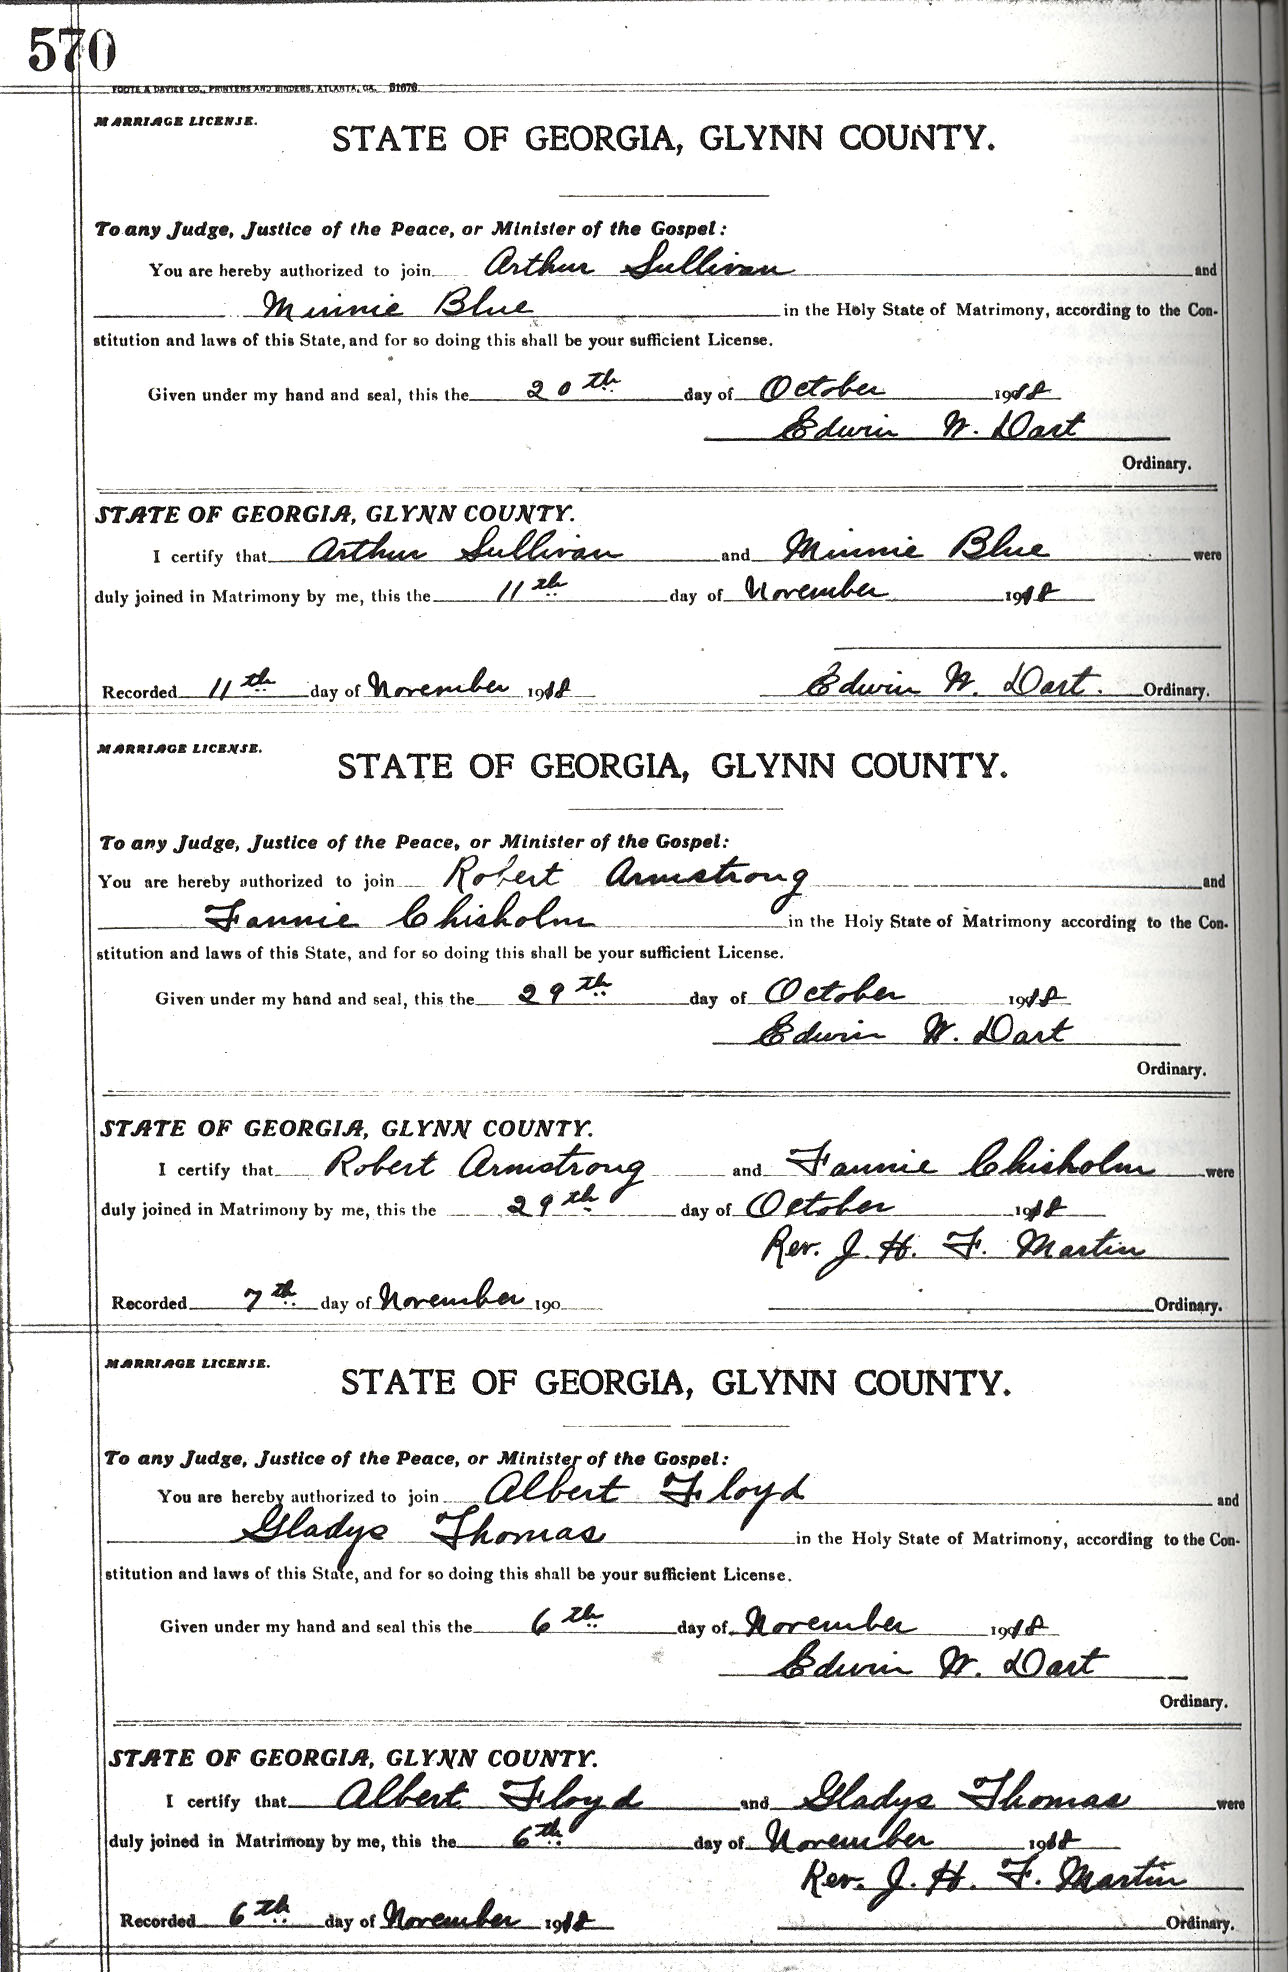 570
FOOTE & DAVIES CO., PRINTERS AND BINDERS, ATLANTA, GA. 51676
MARRIAGE LICENSE.
STATE OF GEORGIA, GLYNN COUNTY.
To any Judge, Justice of the Peace, or Minister of the Gospel:
You are hereby authorized to join Arthur Sullivan and
Minnie Blue in the Holy State of Matrimony, according to the Con-
stitution and laws of this State, and for so doing this shall be your sufficient License.
Given under my hand and seal, this the 20th day of October 1918
Edwin W. Dart
Ordinary.
STATE OF GEORGIA, GLYNN COUNTY.
I certify that Arthur Sullivan and Minnie Blue were
duly joined in Matrimony by me, this the 11th day of November 1918
Recorded 11th day of November 1918 Edwin W. Dart. Ordinary.
MARRIAGE LICENSE.
STATE OF GEORGIA, GLYNN COUNTY.
To any Judge, Justice of the Peace, or Minister of the Gospel:
You are hereby authorized to join Robert Armstrong and
Fannie Chisholm in the Holy State of Matrimony according to the Con-
stitution and laws of this State, and for so doing this shall be your sufficient License.
Given under my hand and seal, this the 29th day of October 1918
Edwin W. Dart
Ordinary.
STATE OF GEORGIA, GLYNN COUNTY.
I certify that Robert Armstrong and Fannie Chisholm were
duly joined in Matrimony by me, this the 29th day of October 1918
Rev. J. H. F. Martin
Recorded 7th day of November 190 Ordinary.
MARRIAGE LICENSE.
STATE OF GEORGIA, GLYNN COUNTY.
To any Judge, Justice of the Peace, or Minister of the Gospel:
You are hereby authorized to join Albert Floyd and
Gladys Thomas in the Holy State of Matrimony, according to the Con-
stitution and laws of this State, and for so doing this shall be your sufficient License.
Given under my hand and seal this the 6th day of November 1918
Edwin W. Dart
Ordinary.
STATE OF GEORGIA, GLYNN COUNTY.
I certify that Albert Floyd and Gladys Thomas were
duly joined in Matrimony by me, this the 6th day of November 1918
Rev. J. H. F. Martin
Recorded 6th day of November 1918 Ordinary.